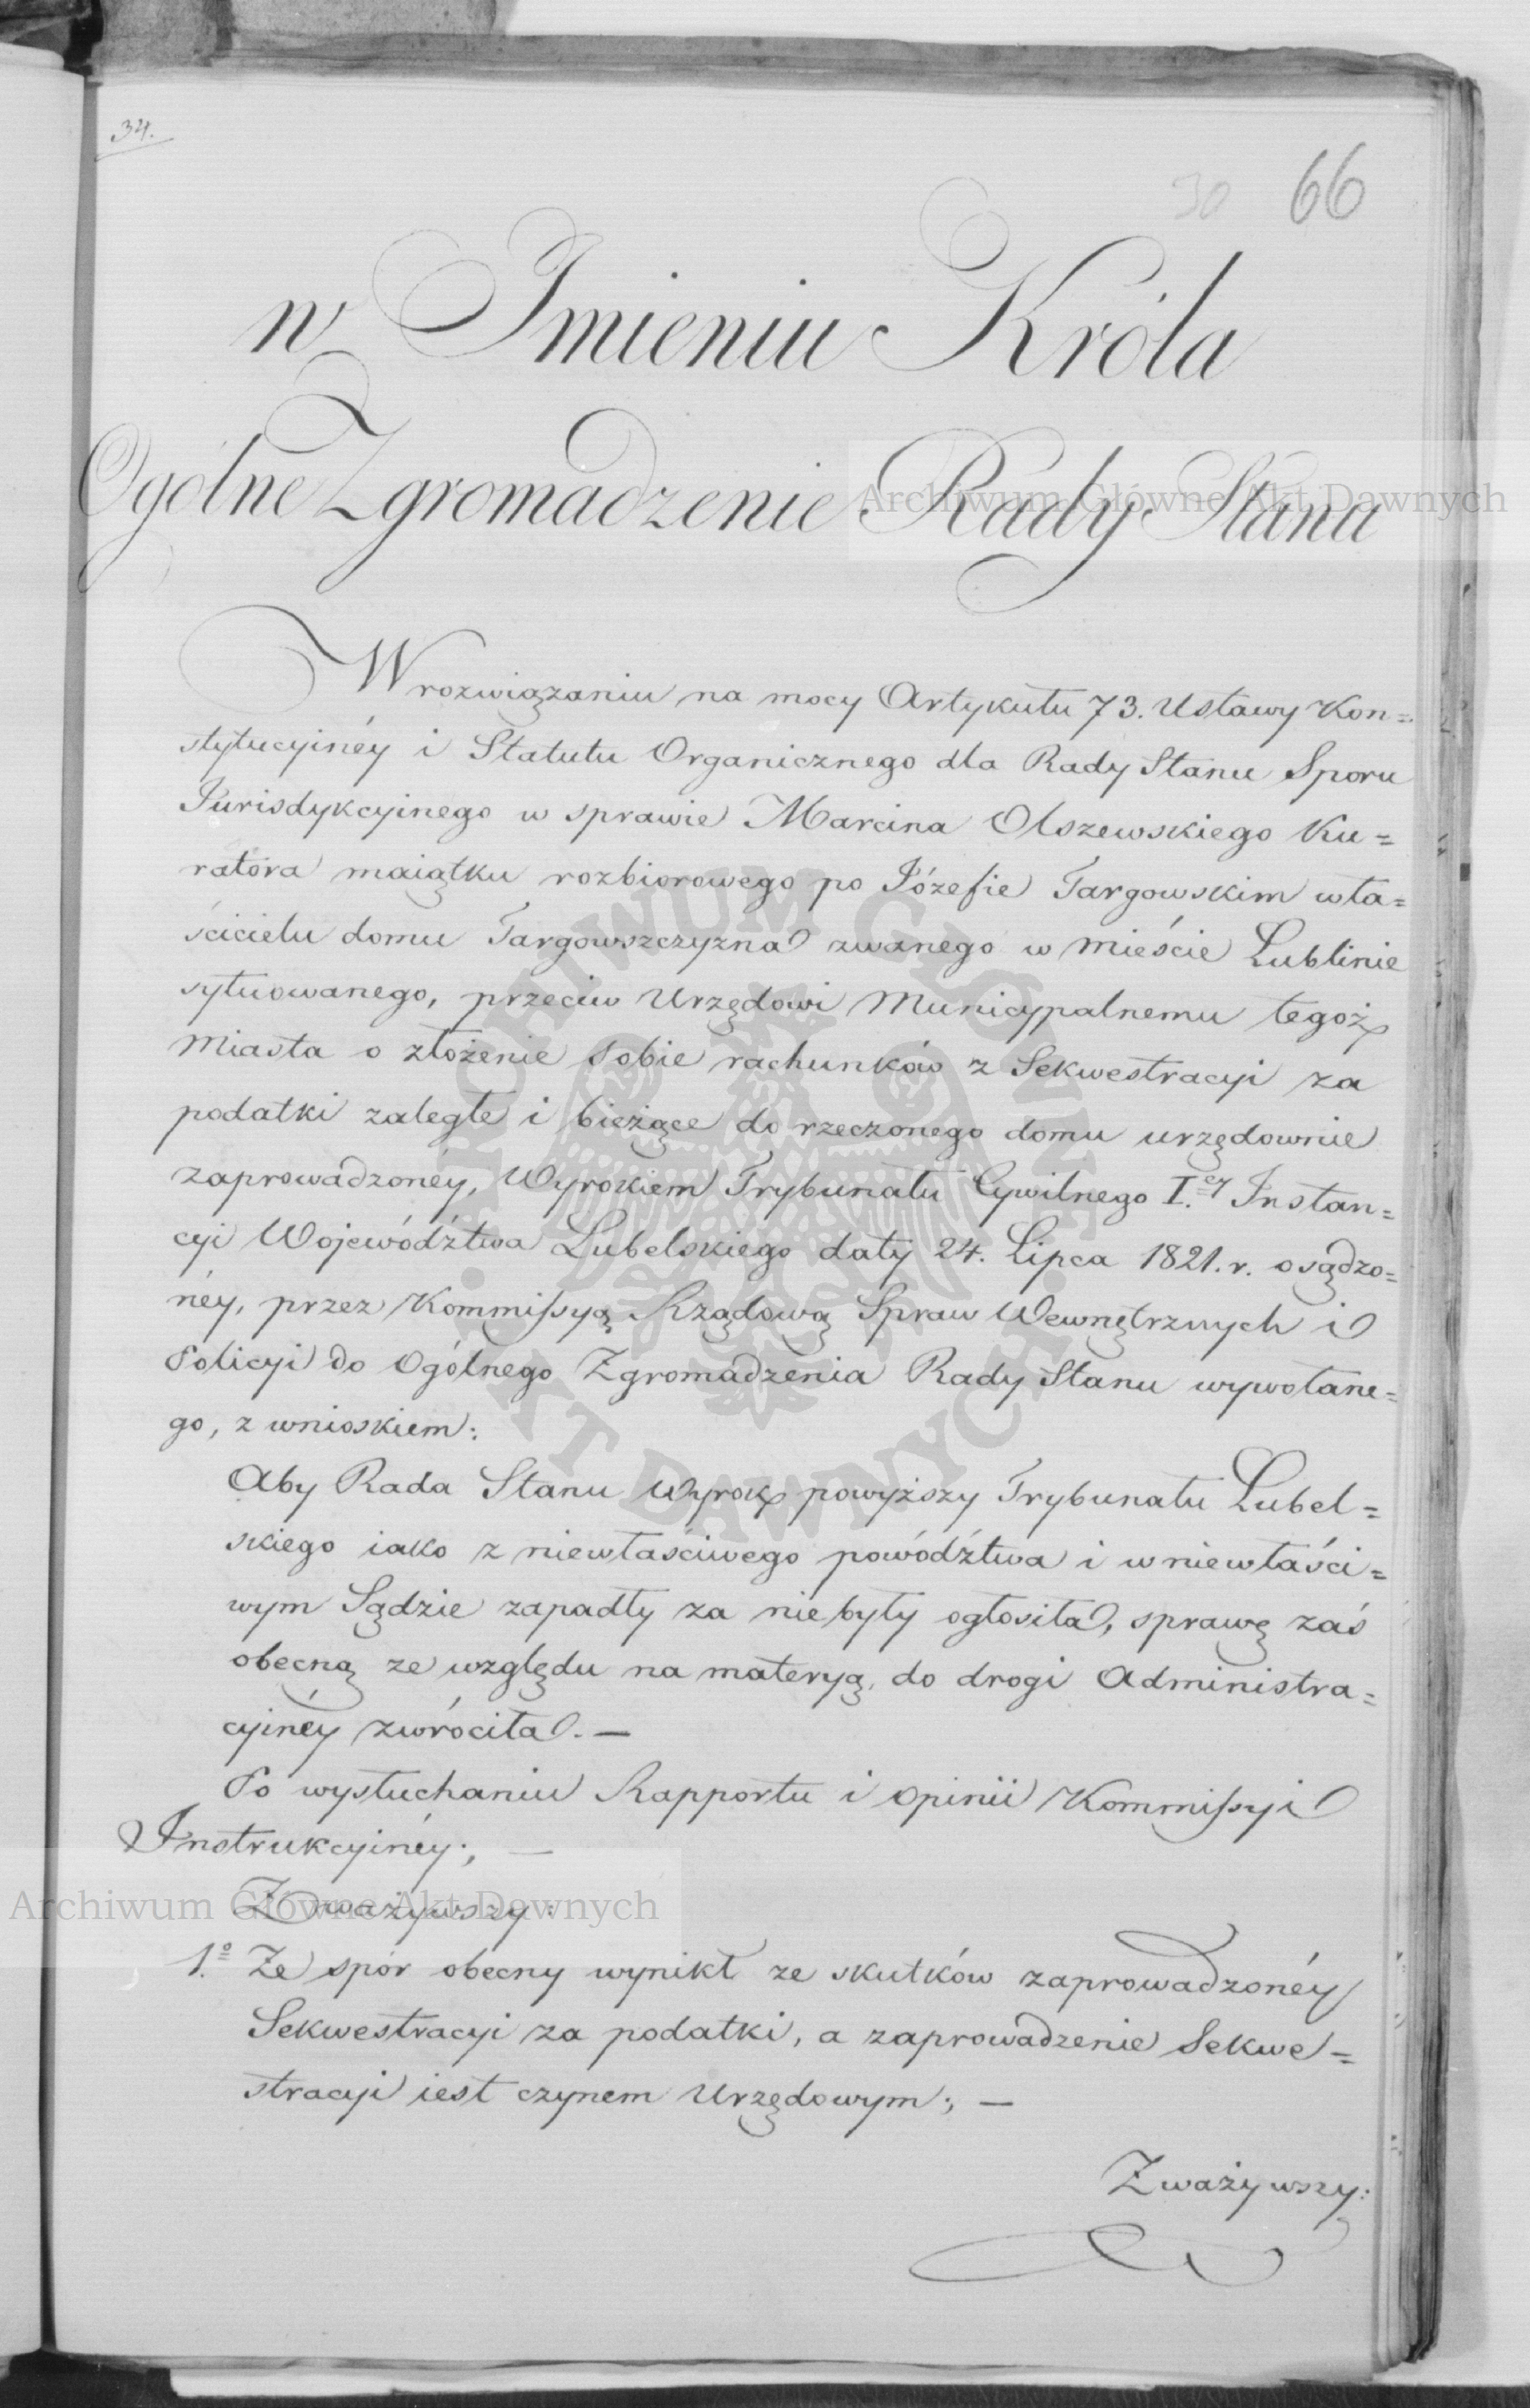 34.
30 66
w Imieniu Króla
Ogólne Zgromadzenie Rady Stanu
W rozwiązaniu na mocy Artykułu 73. Ustawy Kon=
stytucyinéy i Statutu Organicznego dla Rady Stanu Sporu
Jurisdykcyinego w sprawie Marcina Olszewskiego Ku=
ratora maiątku rozbiorowego po Józefie Targowskim wła=
ścicielu domu Targowszczyzna zwanego w mieście Lublinie
sytuowanego, przeciw Urzędowi Municypalnemu tegoż
Miasta o złożenie sobie rachunków z Sekwestracyi za
podatki zaległe i bieżące do rzeczonego domu urzędownie
zaprowadzonéy, Wyrokiem Trybunału Cywilnego I.ey Instan=
cyi Województwa Lubelskiego daty 24. Lipca 1821. r. osądzo=
néy, przez Kommissyą Rządową Spraw Wewnętrznych i
Policyi do Ogólnego Zgromadzenia Rady Stanu wywołane=
go, z wnioskiem:
Aby Rada Stanu Wyrok powyższy Trybunału Lubel=
skiego iako z niewłaściwego powództwa i w niewłaści=
wym Sądzie zapadły za niebyły ogłosiła, sprawę zaś
obecną ze względu na materyą, do drogi Administra=
cyinéy zwróciła. —
Po wysłuchaniu Rapportu i opinii Kommissyi
Instrukcyinéy; —
Zważywszy:
1.o Że spór obecny wynikł ze skutków zaprowadzonéy
Sekwestracyi za podatki, a zaprowadzenie Sekwe=
stracyi iest czynem Urzędowym; —
Zważywszy:
Archiwum Główne Akt Dawnych
Archiwum Główne Akt Dawnych
ARCHIWUM GŁÓWNE AKT DAWNYCH